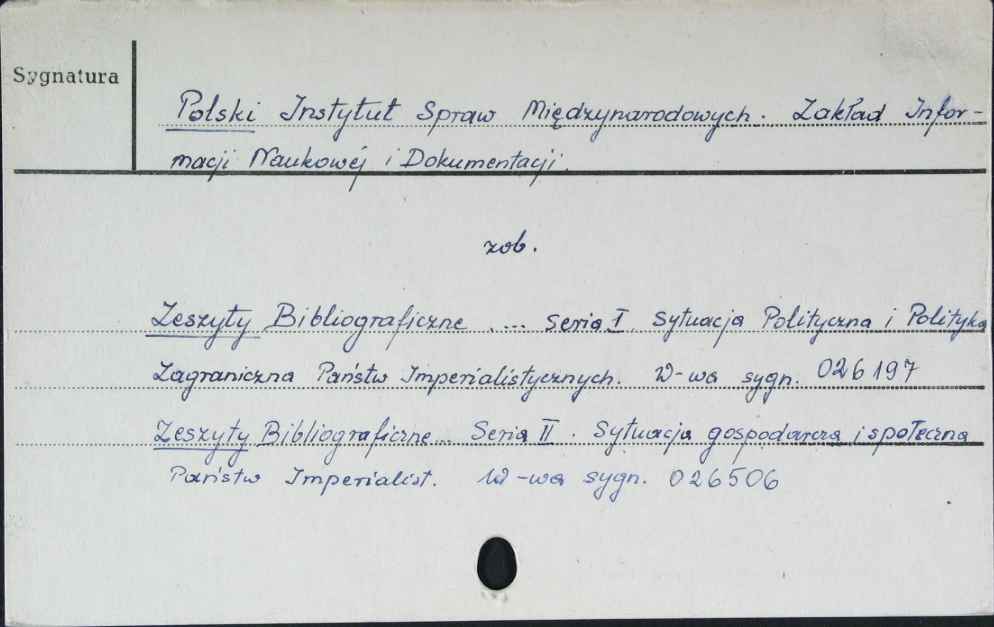 Sygnatura
Polski Instytut Spraw Międzynarodowych. Zakład Infor-
macji Naukowej i Dokumentacji.
zob.
Zeszyty Bibliograficzne .... Seria I. Sytuacja Polityczna i Polityka
Zagraniczna Państw Imperialistycznych. W-wa sygn. 026197
Zeszyty Bibliograficzne... Seria II. Sytuacja gospodarcza i społeczna
Państw Imperialist. W-wa sygn. 026506